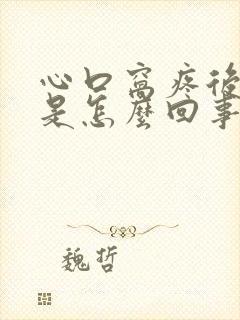 心口窩疼後
是怎麼回事
魏哲